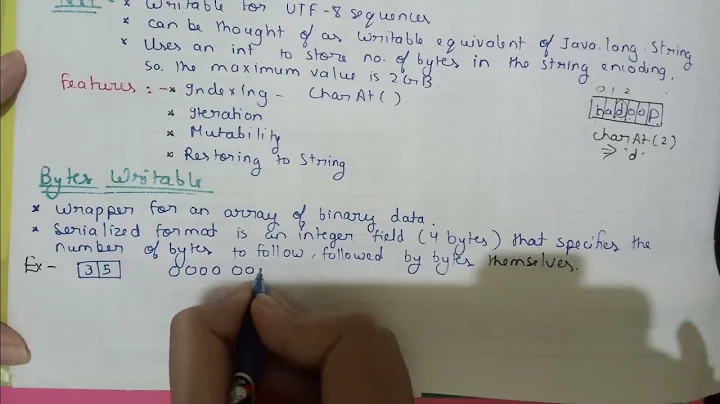 Text - * Writable for UTF-8 sequences
* Can be thought of as writable equivalent of Java.lang.String
* Uses an int to store no. of bytes in the string encoding, so the maximum value is 2GB.
Features : - * Indexing - CharAt()
0 1 2
hadoop
* Iteration
charAt(2)
* Mutability
⇒ 'd'
* Restoring to String
Bytes Writable
* Wrapper for an array of binary data.
* Serialized format is an integer field (4 bytes) that specifies the
number of bytes to follow, followed by bytes themselves.
Ex - 3 5 0000 00